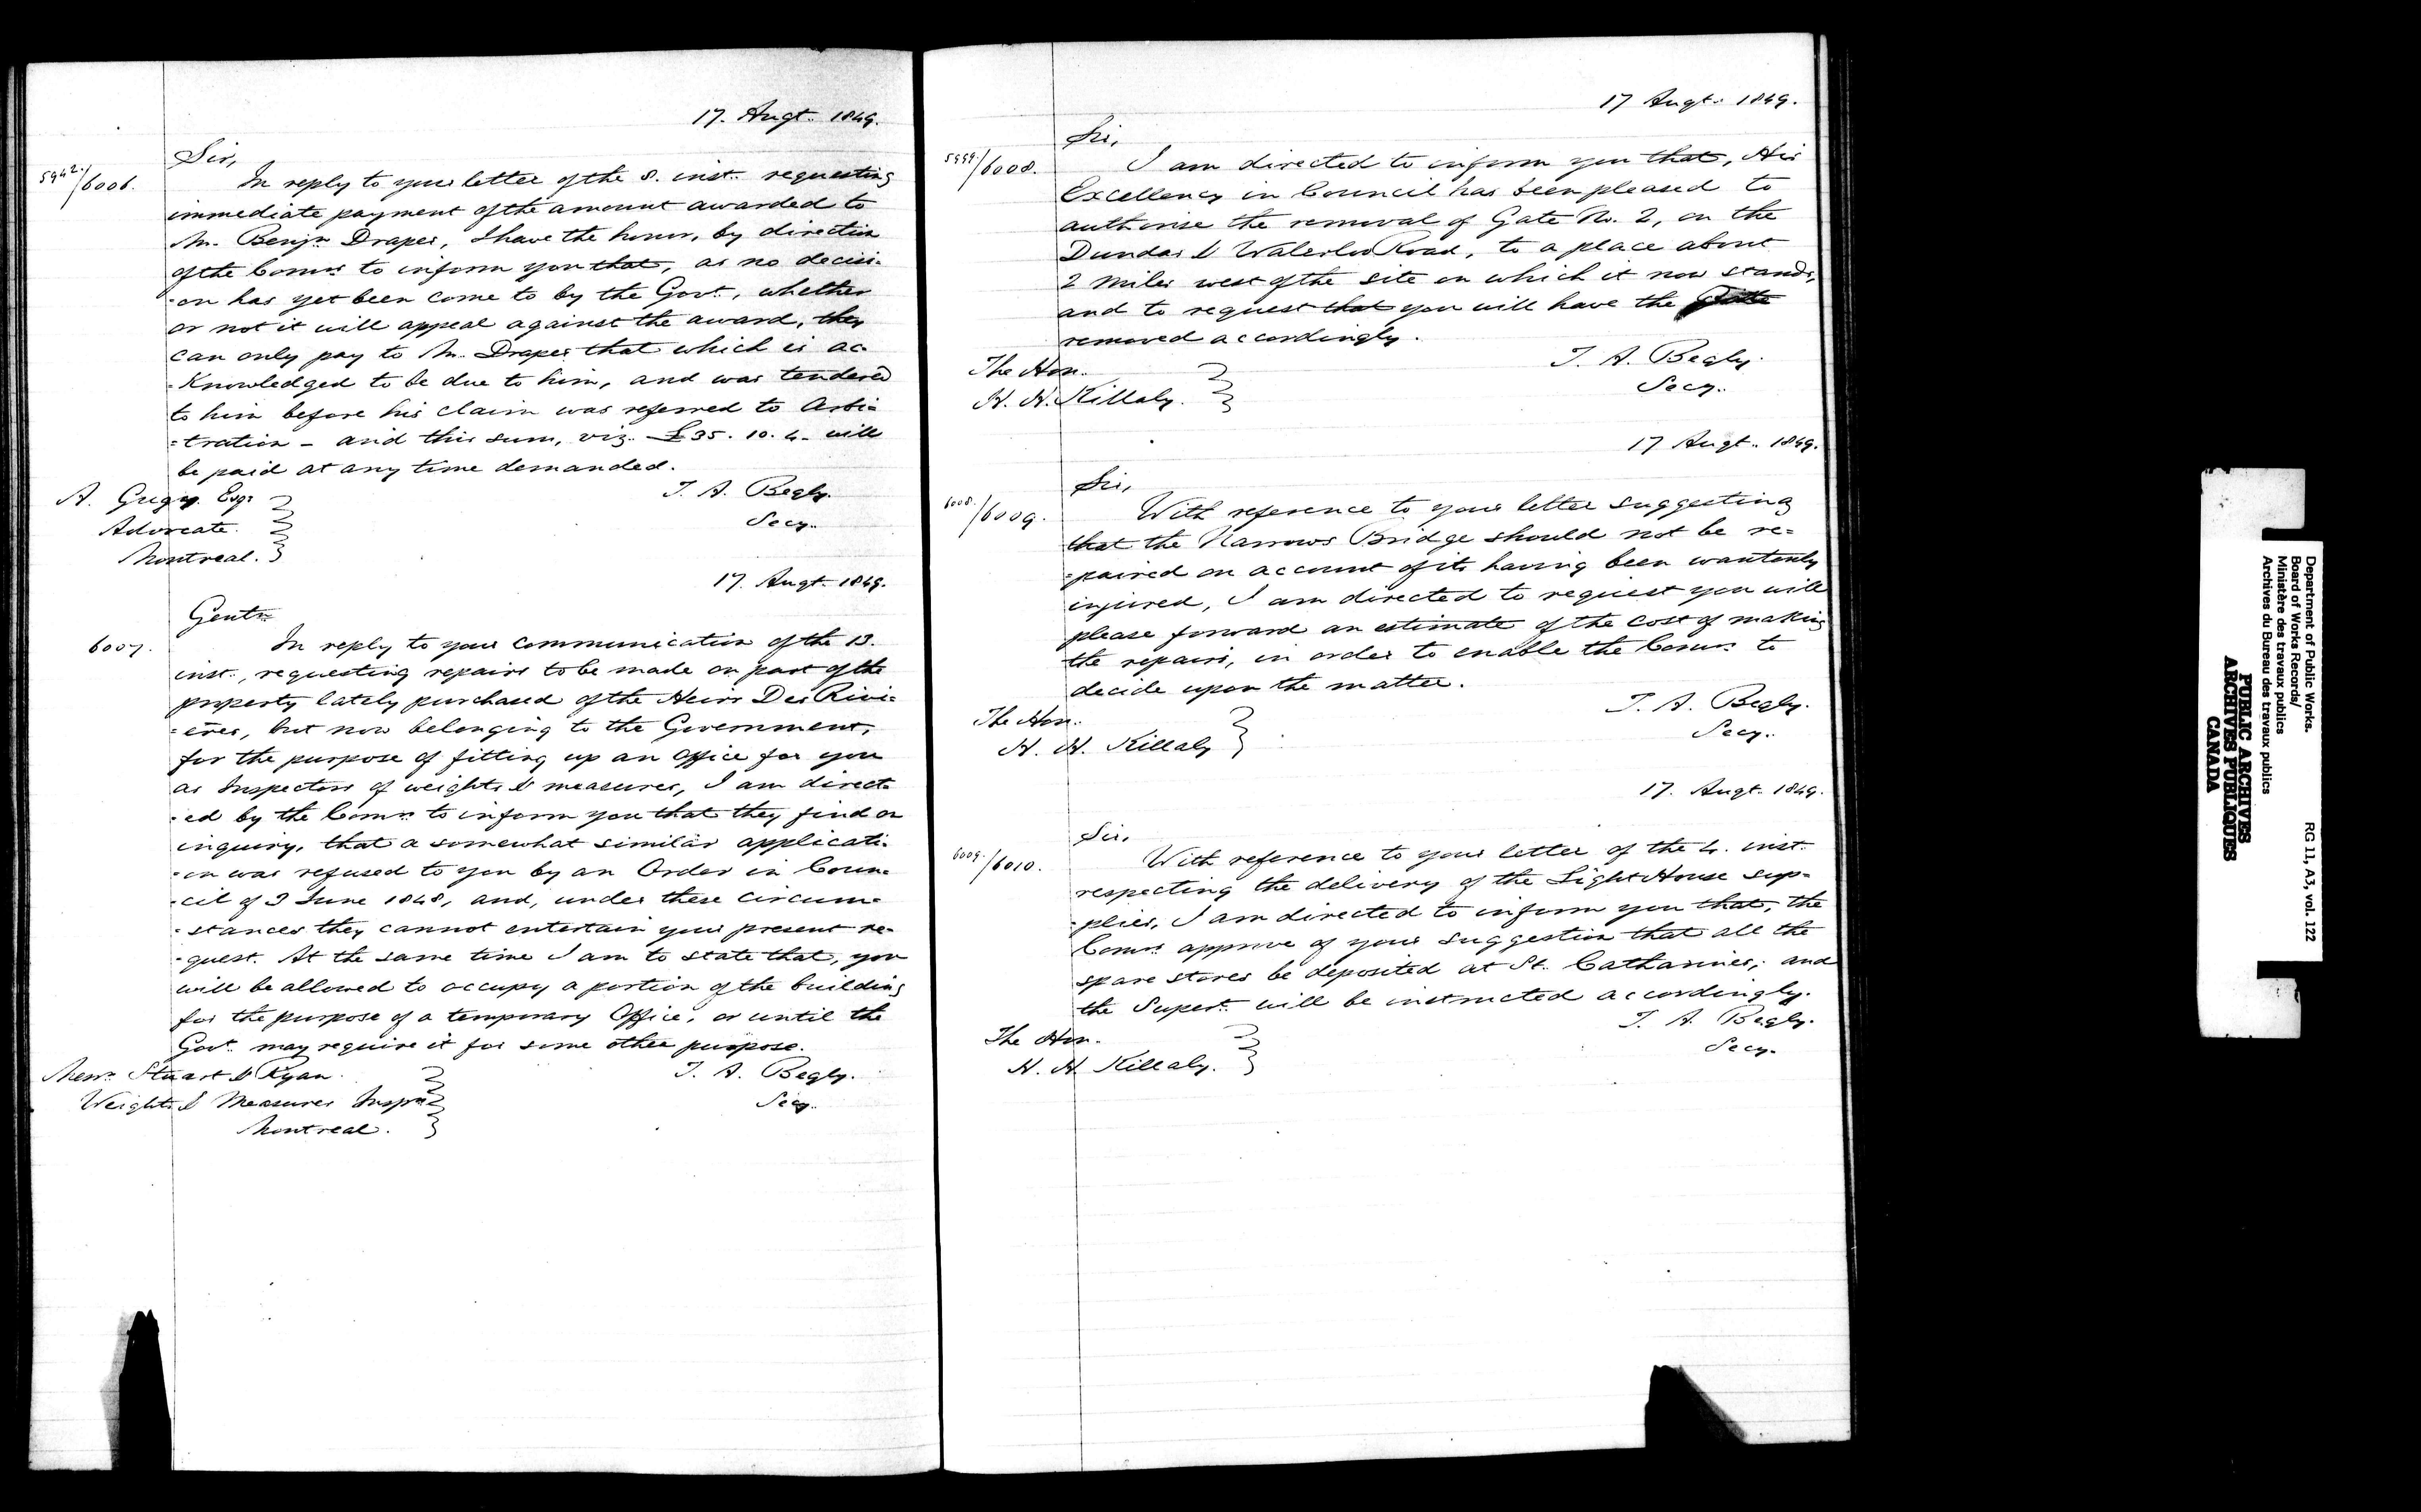 17. Augt. 1849.
Sir,
5942/6006.
In reply to your letter of the 8. inst. requesting
immediate payment of the amount awarded to
Mr. Benjn Draper, I have the honor, by direction
of the Comrs to inform you that, as no decisi-
-on has yet been come to by the Govt., whether
or not it will appeal against the award, they
can only pay to Mr. Draper that which is ac-
-knowledged to be due to him, and was tendered
to him before his claim was referred to Arbi-
-tration - and this sum, viz. £35. 10. 4. will
be paid at any time demanded.
T. A. Begly.
Secy.
A. Gugy. Esqr
Advocate.
Montreal.
17. Augt. 1849.
Gentn
6007.
In reply to your communication of the 13.
inst., requesting repairs to be made on part of the
property lately purchased of the Heirs Des Rivi-
-eres, but now belonging to the Government,
for the purpose of fitting up an Office for you
as Inspectors of weights & measures, I am direct-
-ed by the Comrs to inform you that they find on
inquiry, that a somewhat similar applicati-
-on was refused to you by an Order in Coun-
-cil of 3 June 1848, and, under these circum-
-stances they cannot entertain your present re-
-quest. At the same time I am to state that, you
will be allowed to occupy a portion of the building
for the purpose of a temporary Office, or until the
Govt. may require it for some other purpose.
T. A. Begly.
Secy.
Messrs Stuart & Ryan.
Weights & Measures Insprs
Montreal.
17 Augt. 1849.
Sir,
5999/6008.
I am directed to inform you that, His
Excellency in Council has been pleased to
authorise the removal of Gate No. 2, on the
Dundas & Waterloo Road, to a place about
2 Miles west of the site on which it now stands,
and to request that you will have the Gate
removed accordingly.
T. A. Begly.
Secy.
The Hon.
H. H. Killaly.
17 Augt. 1849.
Sir,
6008/6009.
With reference to your letter suggesting
that the Narrows Bridge should not be re-
-paired on account of its having been wantonly
injured, I am directed to request you will
please forward an estimate of the cost of making
the repairs, in order to enable the Comrs to
decide upon the matter.
T. A. Begly.
Secy.
The Hon.
H. H. Killaly
17. Augt. 1849.
Sir,
6009/6010.
With reference to your letter of the 4. inst.
respecting the delivery of the Light House sup-
-plies, I am directed to inform you that, the
Comrs approve of your suggestion that all the
spare stores be deposited at St. Catharines, and
the Supert. will be instructed accordingly.
T. A. Begly.
Secy.
The Hon.
H. H. Killaly.
Department of Public Works.
Board of Works Records/
Ministère des travaux publics
Archives du Bureau des travaux publics
RG 11, A3, vol. 122
PUBLIC ARCHIVES
ARCHIVES PUBLIQUES
CANADA